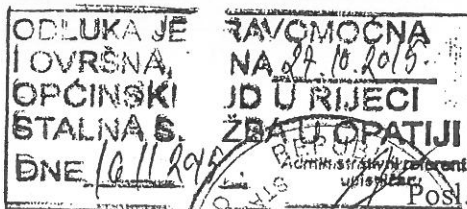 ODLUKA JE RAVOMOĆNA
I OVRŠNA, NA 27.10.2015.
OPĆINSKI UD U RIJECI
STALNA S. ŽBA U OPATIJI
DNE 16 11
REPUB
Administrativni referent
upisničar
Posl
STAL